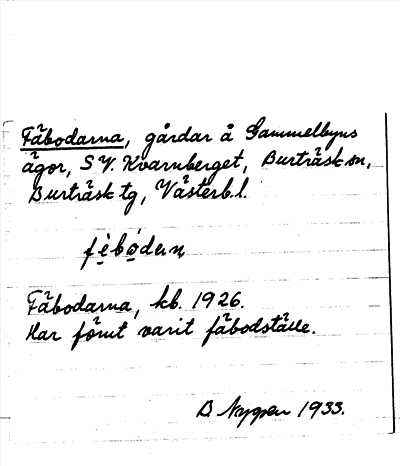 Fäbodarna, gårdar å Gammelbyns
ägor, S V. Kvarnberget, Burträsk sn,
Burträsk tg, Västerb. l.
fè̱bó̱dαn̥
Fäbodarna, kb. 1926.
Har förut varit fäbodställe.
D Nygren 1933.